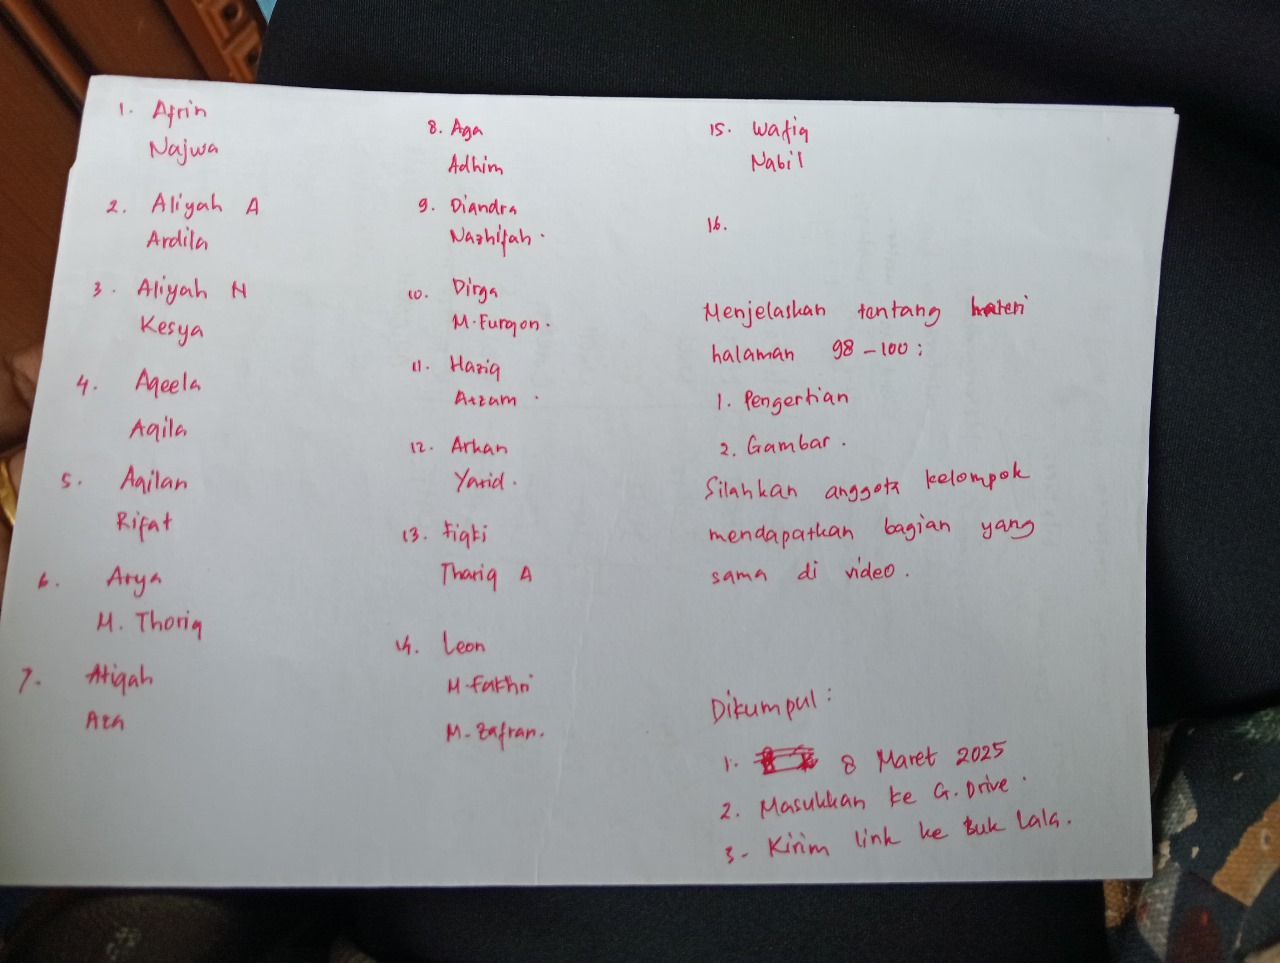 1. Afrin
Najwa
2. Aliyah A
Ardila
3. Aliyah N
Kesya
4. Aqeela
Aqila
5. Aqilan
Rifat
6. Arya
M. Thoriq
7. Atiqah
Aza
8. Aga
Adhim
9. Diandra
Nazhifah.
10. Dirga
M. Furqon.
11. Haziq
Azzam.
12. Arkan
Yazid.
13. Fiqki
Thariq A
14. Leon
M. Fakhri
M. Zafran.
15. Wafiq
Nabil
16.
Menjelaskan tentang materi
halaman 98-100:
1. Pengertian
2. Gambar.
Silahkan anggota kelompok
mendapatkan bagian yang
sama di video.
Dikumpul:
1. 8 Maret 2025
2. Masukkan ke G. Drive.
3. Kirim link ke Buk Lala.